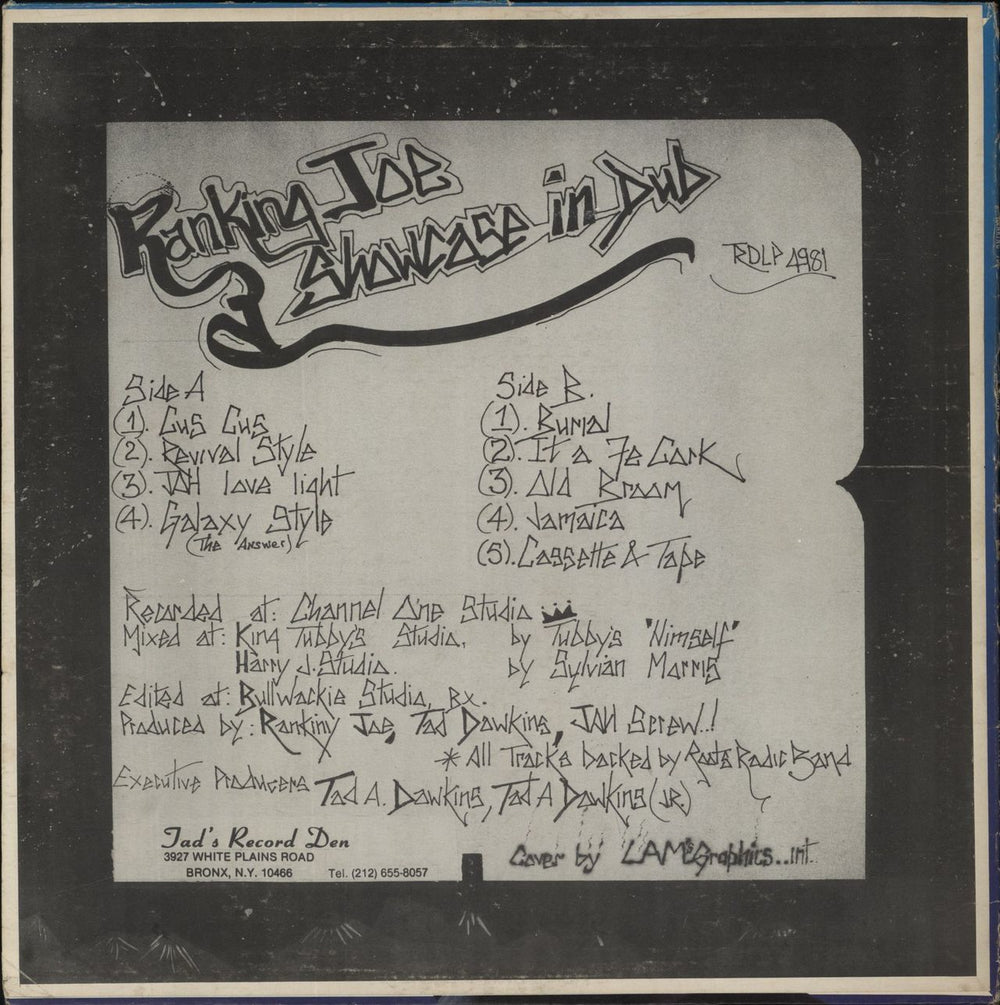 Ranking Joe
Showcase in Dub
RDLP 4981
Side A
(1). Gus Gus
(2). Revival Style
(3). JAH love light
(4). Galaxy Style
(The Answer)
Side B.
(1). Burial
(2). It a Fe Cork
(3). Old Broom
(4). Jamaica
(5). Cassette & Tape
Recorded at: Channel One Studio
Mixed at: King Tubby's Studio, by Tubby's "Himself"
Harry J. Studio. by Sylvian Morris
Edited at: Bullwackie Studio, Bx.
Produced by: Ranking Joe, Tad Dawkins, JAH Screw..!
* All Tracks backed by Roots Radic Band
Executive Producers Tad A. Dawkins, Tad A Dawkins (JR.)
Tad's Record Den
3927 WHITE PLAINS ROAD
BRONX, N.Y. 10466 Tel. (212) 655-8057
Cover by LAM'S Graphics..int.